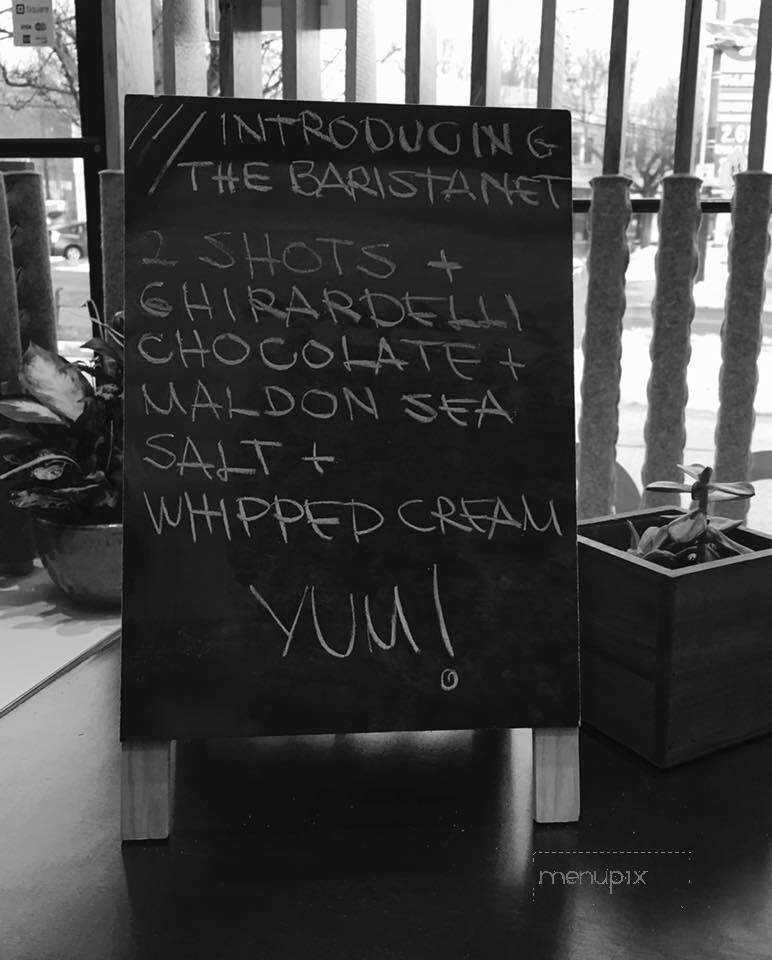 Square
VISA
INTRODUCING
THE BARISTANET
2 SHOTS +
GHIRARDELLI
CHOCOLATE +
MALDON SEA
SALT +
WHIPPED CREAM
YUM!
menupix